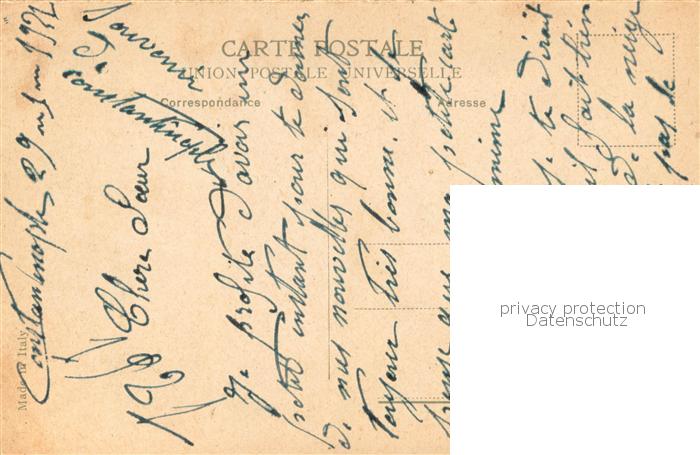 CARTE POSTALE
UNION POSTALE UNIVERSELLE
Correspondance
Adresse
Made in Italy
Constantinople 29
Souvenir
Constantinople
Chère Sœur
Je profite d'avoir un
petit instant pour te donner
de mes nouvelles qui sont
toujour très bonne. et je
pense que ma petite cart
même
je te dirait
il fait bien
de la neige
pas de
privacy protection
Datenschutz